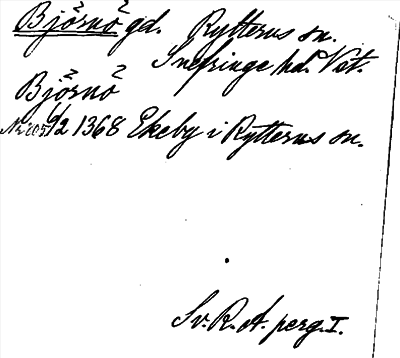 Björnö gd. Rytterns sn.
Snefringe hd. Vst.
Björnö
6/2 1368 Ekeby i Rytterns sn.
Sv. R. A. perg. I.